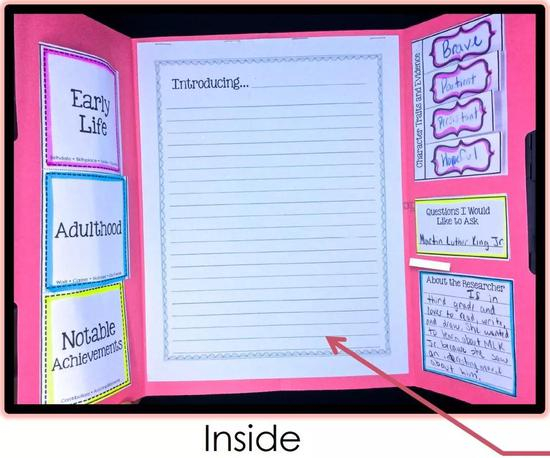 Early
Life
Birthdate • Birthplace •
Adulthood
Notable
Achievements
Introducing...
Character Traits and Evidence
Brave
Patient
Persistant
Hopeful
Questions I Would
Like to Ask
Martin Luther King Jr
About the Researcher
Is in
third grade and
loves to read, write,
and draw. She wanted
to learn about MLK
Jr. because she saw
an
about him.
Inside